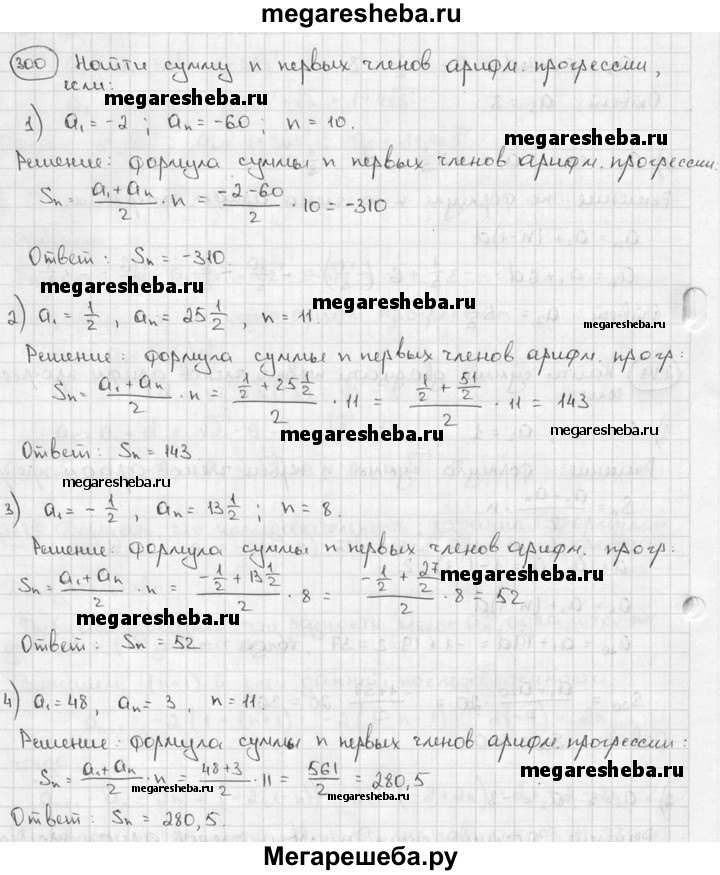 megaresheba.ru
300 Найти сумму n первых членов арифм. прогрессии,
если:
megaresheba.ru
megaresheba.ru
1) a₁ = -2 ; aₙ = -60 ; n = 10.
Решение: формула суммы n первых членов арифм. прогрессии.
Sₙ = (a₁ + aₙ)/2 · n = (-2-60)/2 · 10 = -310
Ответ: Sₙ = -310.
megaresheba.ru
megaresheba.ru
2) a₁ = 1/2 , aₙ = 25 1/2 , n = 11.
megaresheba.ru
Решение: формула суммы n первых членов арифм. прогр:
Sₙ = (a₁ + aₙ)/2 · n = (1/2 + 25 1/2)/2 · 11 = (1/2 + 51/2)/2 · 11 = 143
megaresheba.ru
megaresheba.ru
Ответ: Sₙ = 143.
megaresheba.ru
3) a₁ = - 1/2 , aₙ = 13 1/2 ; n = 8.
Решение: формула суммы n первых членов арифм. прогр:
Sₙ = (a₁ + aₙ)/2 · n = (-1/2 + 13 1/2)/2 · 8 = (-1/2 + 27/2)/2 · 8 = 52
megaresheba.ru
megaresheba.ru
Ответ: Sₙ = 52
4) a₁ = 48, aₙ = 3, n = 11.
Решение: формула суммы n первых членов арифм. прогрессии:
Sₙ = (a₁ + aₙ)/2 · n = (48+3)/2 · 11 = 561/2 = 280,5
megaresheba.ru
megaresheba.ru
megaresheba.ru
Ответ: Sₙ = 280,5.
Мегарешеба.ру